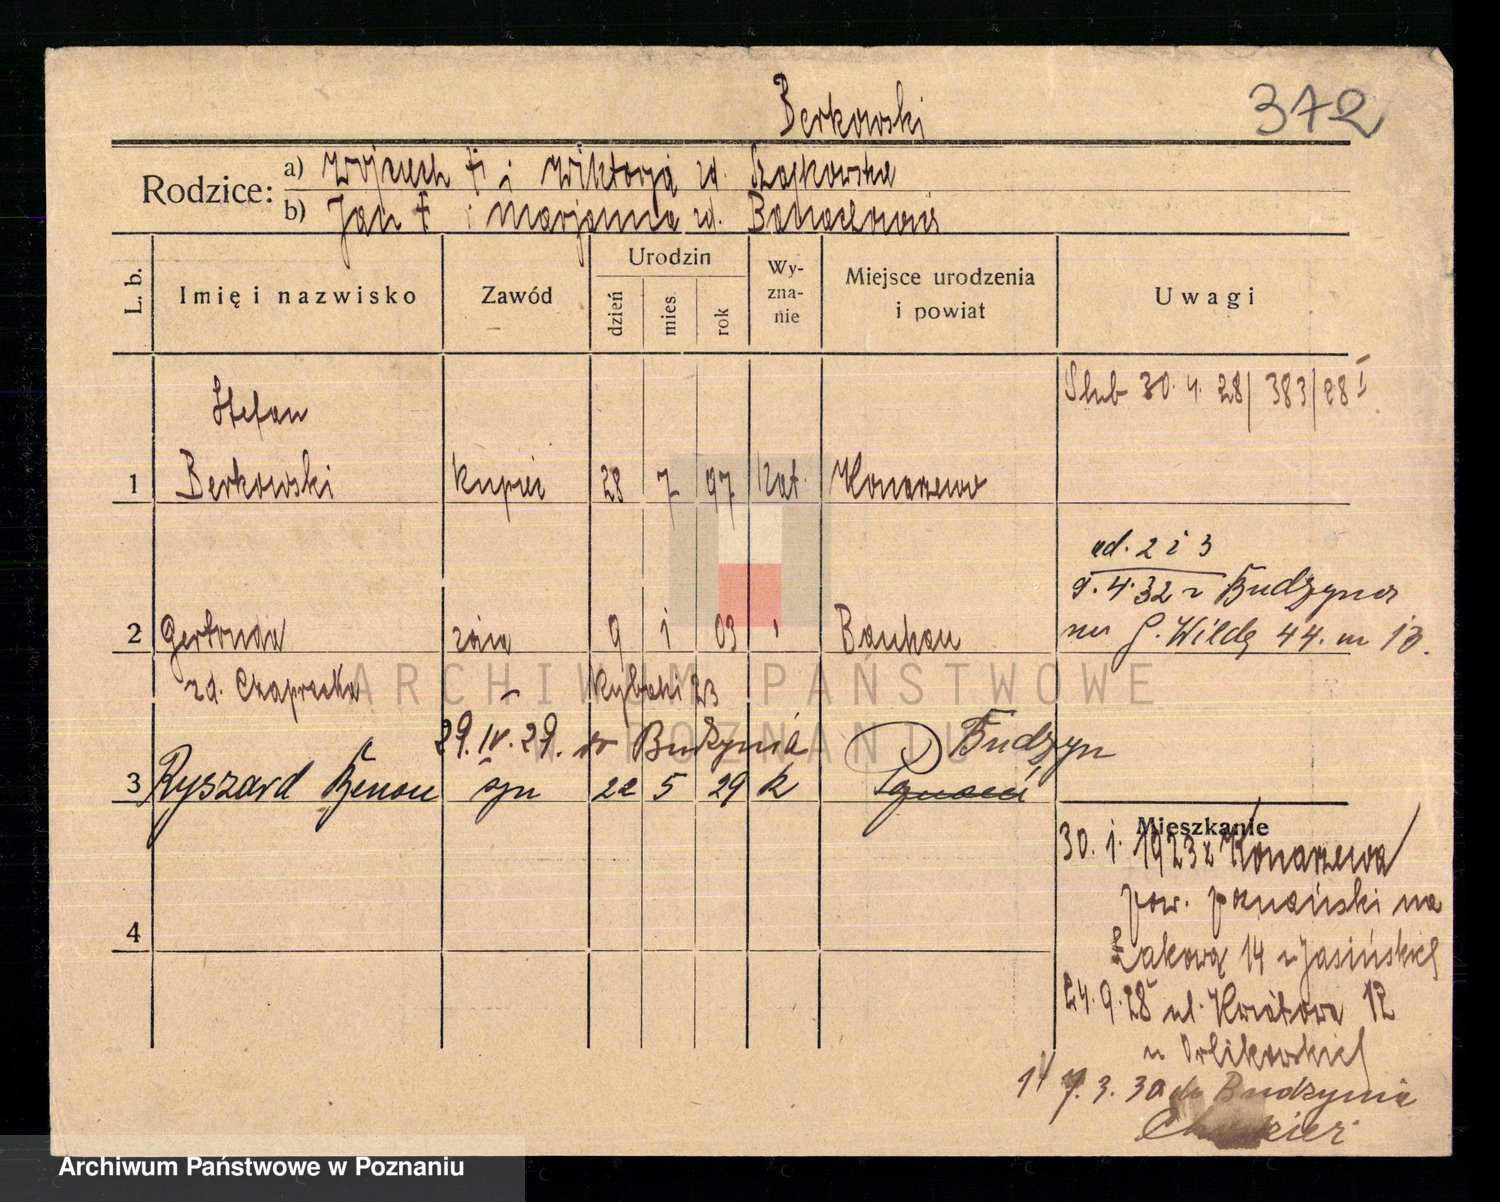 Berkowski
372
Rodzice:
a) Wojciech † i Wiktorja zd. Szajkowska
b) Jan † i Marjanna zd.
L. b.
Imię i nazwisko
Zawód
Urodzin
dzień
mies
rok
Wy-
zna-
nie
Miejsce urodzenia
i powiat
Uwagi
Ślub 30. 4. 28/ 383/28 I
Stefan
1 Berkowski kupiec 28 7 97 kat. Konarzewo
ad. 2 i 3
9. 4. 32 z Budzynia
na G. Wildę 44. m 13.
2 Gertruda żona 9 1 03 Bochum
zd. Czaprecka
29. IV. 29. do Budzynia
Budzyn
3 Ryszard Zenon syn 22 5 29 k Poznań
Mieszkanie
30. 1. 1923 z Konarzewa
pow. poznański na
Łąkową 14 u Jasińskich
4
24. 9. 28 ul. Kwiatowa 12
u Orlikowskich
7. 3. 30 do Budzynia
ARCHIWUM PAŃSTWOWE
W POZNANIU
Archiwum Państwowe w Poznaniu